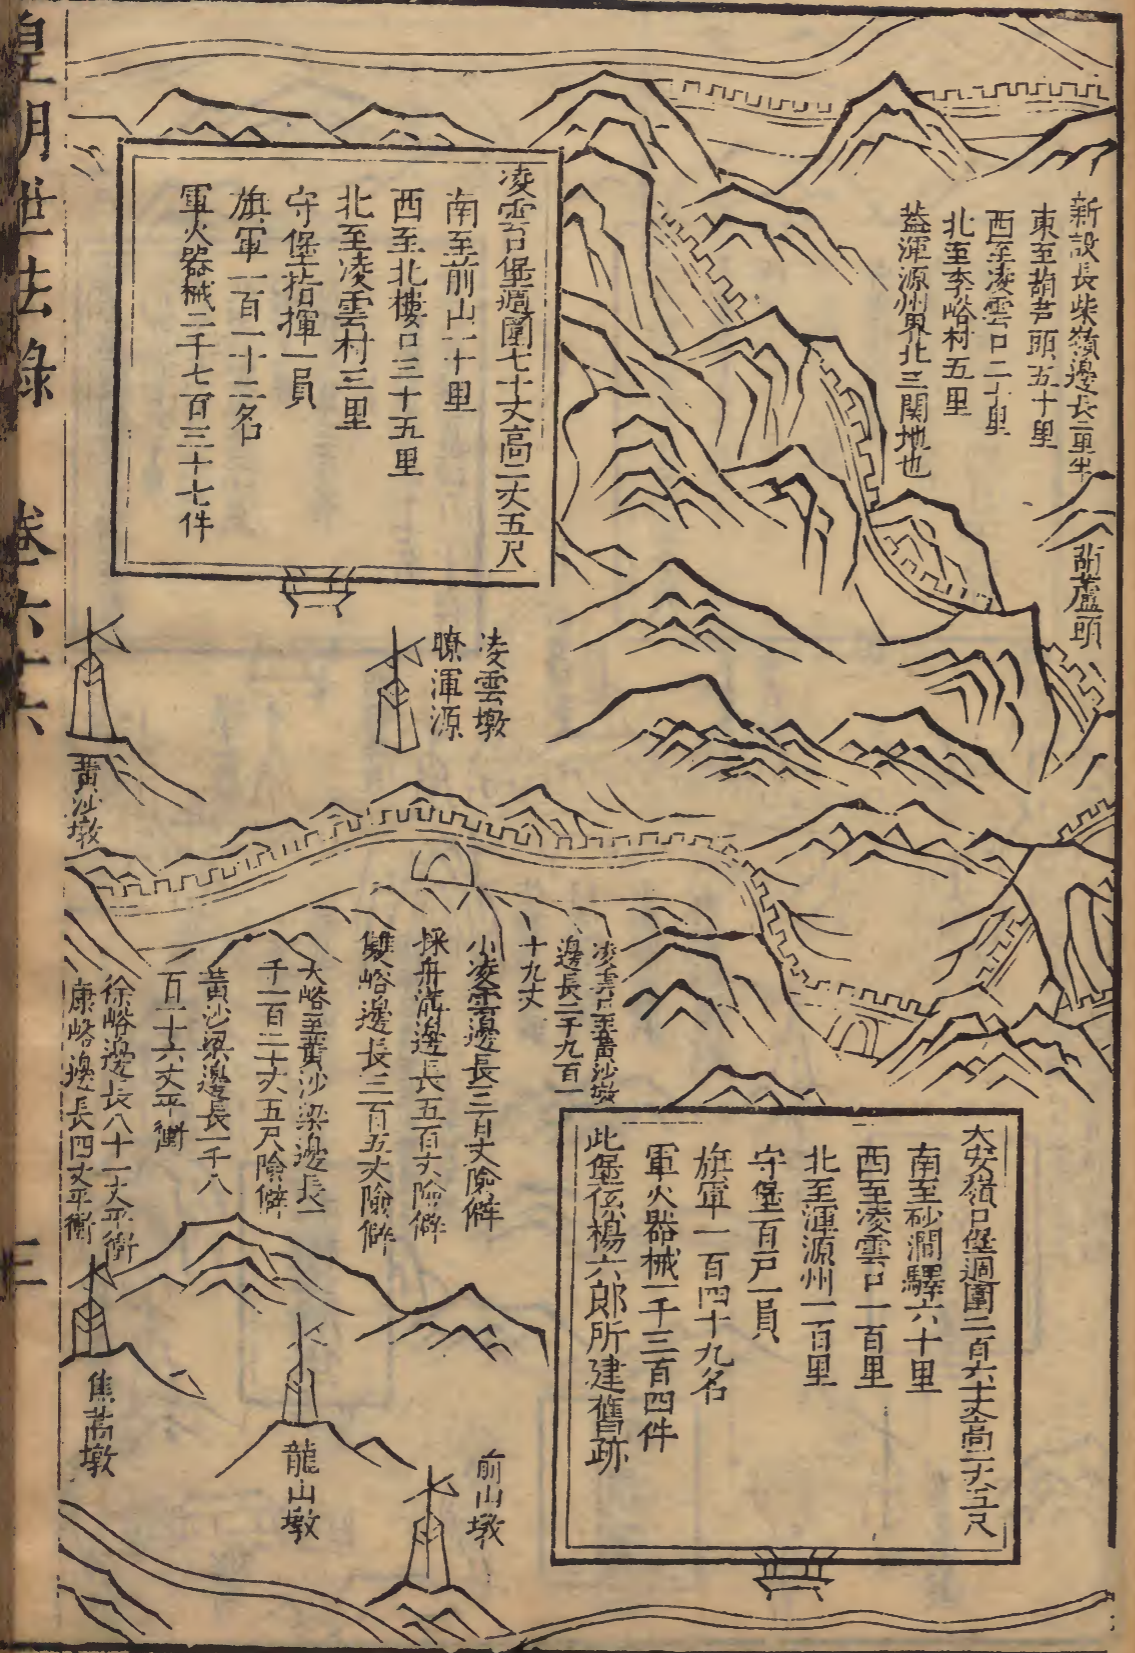 新設長柴嶺邊長二里半
東至葫芦頭五十里
西至凌雲口二十里
北至李峪村五里
蓋渾源州界北三関地也
葫蘆頭
凌雲口堡週圍七十丈高二丈五尺
南至前山二十里
西至北樓口三十五里
北至凌雲村三里
守堡指揮一員
旗軍一百一十二名
軍火器械二千七百三十七件
凌雲墩
瞭渾源
黃沙墩
凌雲口至黃沙墩
邊長二千九百一
十九丈
小凌雲邊長三百丈險僻
採舟溝邊長五百丈險僻
雙峪邊長三百五丈險僻
大峪至黃沙梁邊長一
千一百二十丈五尺險僻
黃沙梁邊長一千八
百一十六丈平衝
徐峪邊長八十一丈平衝
康峪邊長四丈平衝
大安嶺口堡週圍二百六十丈高二丈五尺
南至砂澗驛六十里
西至凌雲口一百里
北至渾源州一百里
守堡百戶一員
旗軍一百四十九名
軍火器械一千三百四件
此堡係楊六郎所建舊跡
前山墩
龍山墩
焦蒿墩
皇明世法錄 卷六十六 三